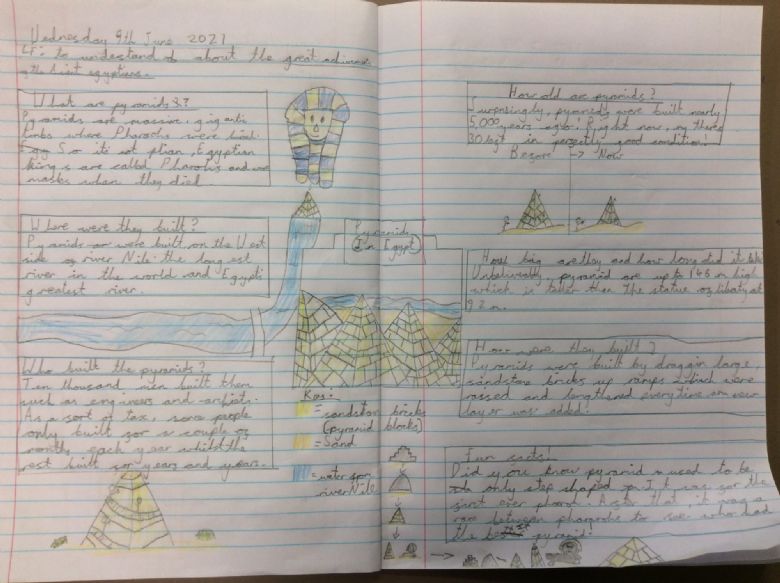 Wednesday 9th June 2021
LF: to undestand of about the great achieveme
of the Aient egyptians.
What are pyramids?
Pyramids are massive, gigantic
tombs where Pharoahs were
Egy So its not plian, Egyptian
kings are called Pharohs and
masks when they died.
Where were they built?
Pyramids or were built on the West
side of river Nile: the longest
river in the world and Egypts
greatest river.
Who built the pyramids?
Ten thousand men built them
such as engineers and artists.
As a sort of tax, some people
only built for a couple of
months each year whilst the
rest built for years and years.
Pyramids
(In Egypt)
Key:
= sandston bricks
(pyramid blocks)
= Sand
= water from
river Nile
How old are pyramids?
Surprisingly, pyramids were built nearly
5,000 years ago! Right now, there
80 left in perfectly good condition!
Before -> Now
How big are they and how long did it take
Unbelievably, pyramid are up to 146 m high
which is taller than the statue of liberty at
92 m.
How were they built?
Pyramids were built by draggin large,
sandstone bricks up ramps which were
rassed and lengthered everytime a new
layer was added!
Fun facts!
Did you know pyramid used to be
only step shaped It was for the
first ever pharoh. After that, it was a
race between pharoahs to see who had
the best pyramid!